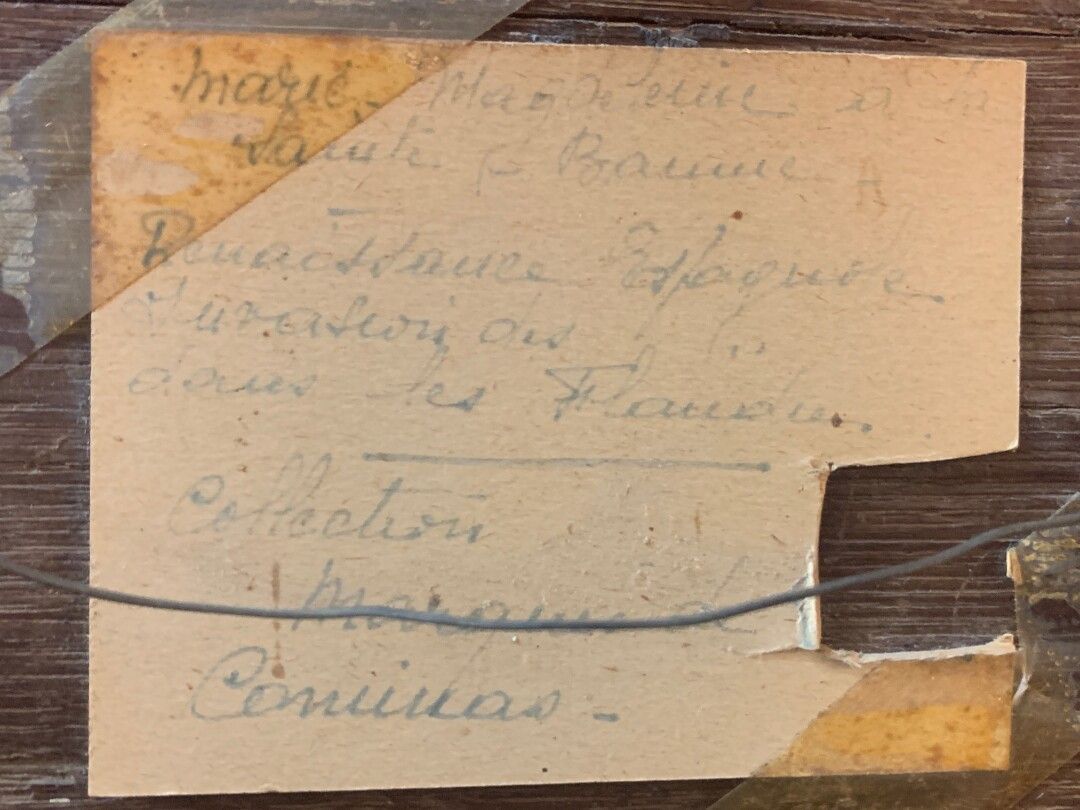 Marie-Magdeleine à la
Sainte-Baume
Renaissance Espagnole.
Invasion des
dans les Flandres.
Collection
Marquis de
Comillas-